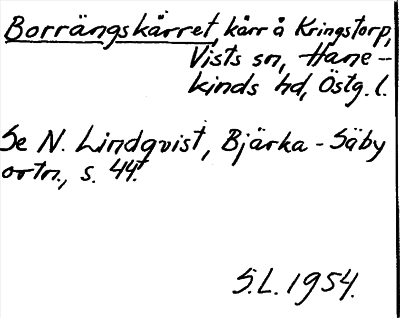 Borrängskärret, kärr å Kringstorp,
Vists sn, Hane-
kinds hd, Östg. l.
Se N. Lindqvist, Bjärka-Säby
ortn., s. 44.
S.L. 1954.